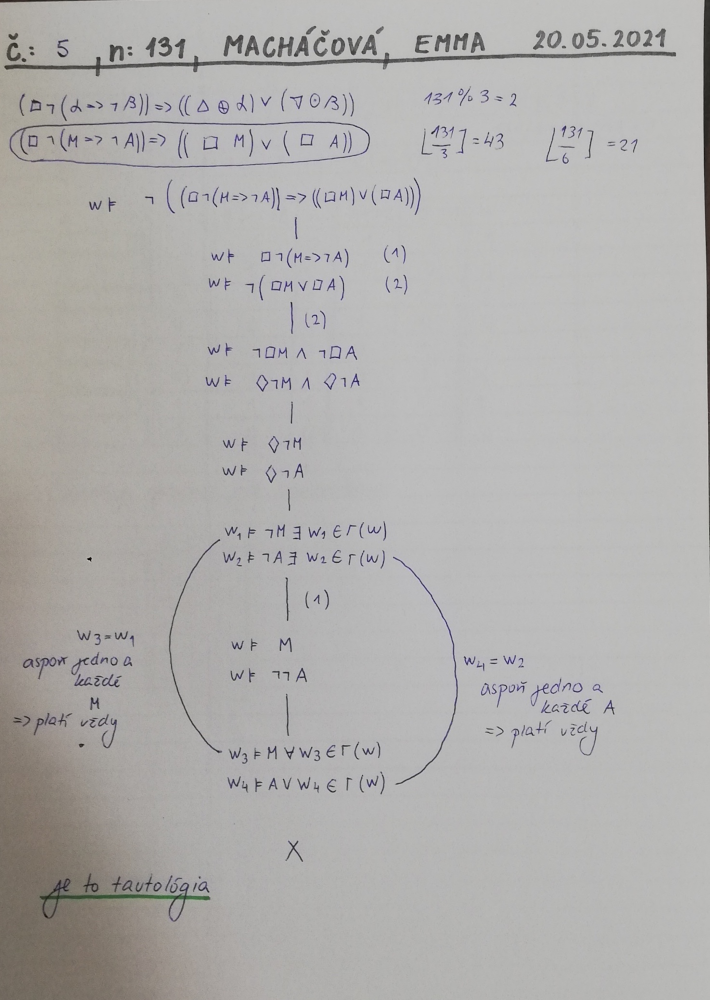 Č.: 5, n: 131, MACHÁČOVÁ, EMMA 20.05.2021
(□¬(α=>¬β))=>((△⊕α)∨(▽⊙β)) 131%3=2
(□¬(M=>¬A))=>((□ M)∨(□ A)) ⌊131/3⌋=43 ⌊131/6⌋=21
w⊨ ¬((□¬(M=>¬A))=>((□M)∨(□A)))
w⊨ □¬(M=>¬A) (1)
w⊨ ¬(□M∨□A) (2)
(2)
w⊨ ¬□M∧¬□A
w⊨ ◊¬M∧◊¬A
w⊨ ◊¬M
w⊨ ◊¬A
w₁⊨¬M∃w₁∈Γ(w)
w₂⊨¬A∃w₂∈Γ(w)
(1)
w⊨ M
w⊨ ¬¬A
w₃=w₁
aspoň jedno a
každé
M
=> platí vždy
w₄=w₂
aspoň jedno a
každé A
=> platí vždy
w₃⊨M∀w₃∈Γ(w)
w₄⊨A∀w₄∈Γ(w)
X
je to tautológia